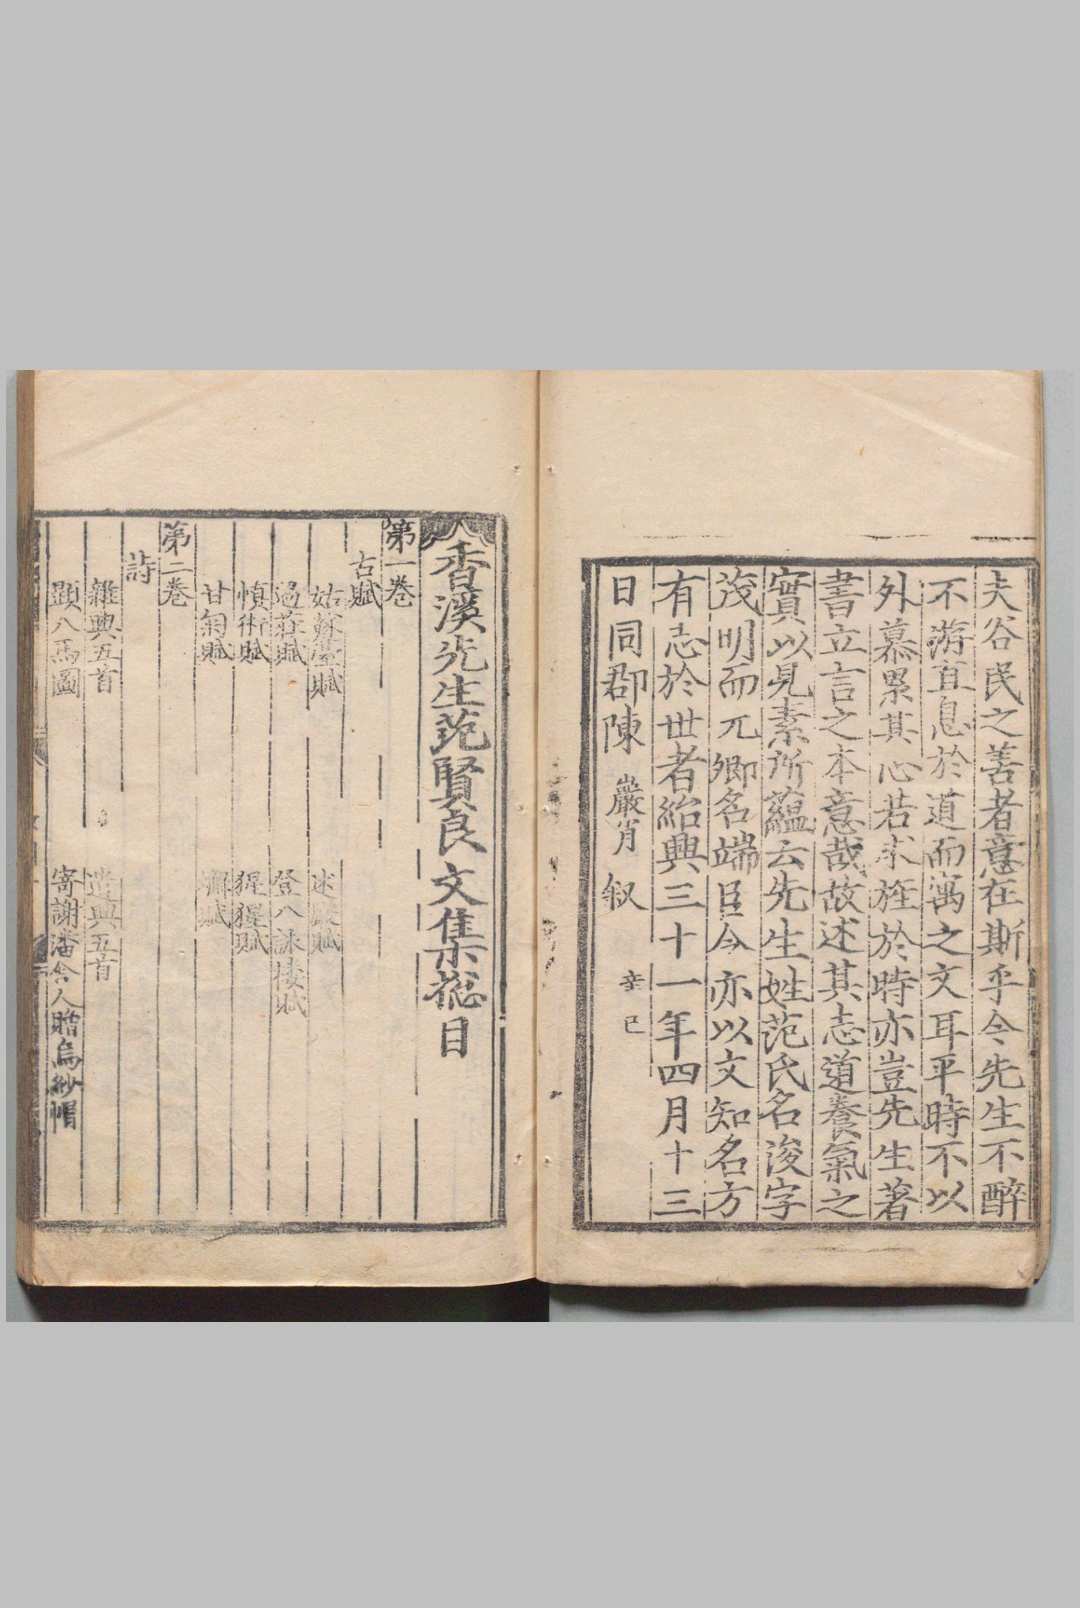 夫谷民之善者意在斯乎今先生不醉
不游直息於道而寓之文耳平時不以
外慕累其心若求旌於時亦豈先生著
書立言之本意哉故述其志道養氣之
實以見素所蘊云先生姓范氏名浚字
茂明而兀卿名端臣今亦以文知名方
有志於世者紹興三十一年四月十三
日同郡陳巖肖叙 辛巳
香溪先生范賢良文集揔目
第一卷
古賦
姑蘇臺賦
過莊賦 登八詠樓賦
慎術賦 猩猩賦
甘菊賦
第二卷
詩
雜興五首 遣興五首
題八馬圖 寄謝潘令人贈烏紗帽